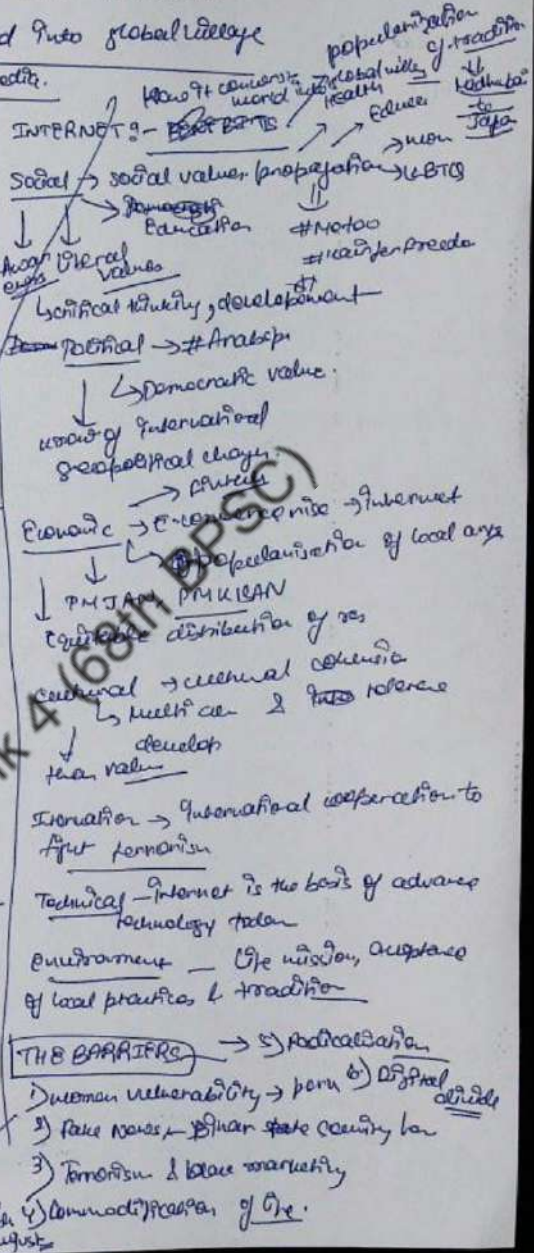 d into global village
edia.
popularization
of tradition
How it converts
world into
global village
Health
Madhubani
to
Japa
INTERNET :-
Educa
Social → social values propagation → LBTQ
Education
#Metoo
Awar
eness
literal
values
↳ critical thinking, developement
Political → #Arabsp
↳ Democratic value.
know of International
geopolitical changes.
Economic → E-commerce rise → internet
popularisation of local arts
PMJAY, PMKISAN
Equitable distribution of res
Cultural → cultural cohesion
↳ Multi & tolerance
develop
than value
→ International cooperation to
fight terrorism
Technical – internet is the basis of advance
technology today
environment – Life mission, acceptance
of local practices & tradition
THE BARRIERS → 5) Radicalisation
1) women vulnerability → porn 6) Digital
divide
2) Fake News – Bihar
3) Terrorism & black marketing
4) Commodification of life.
August
k 4 (68th BPSC)